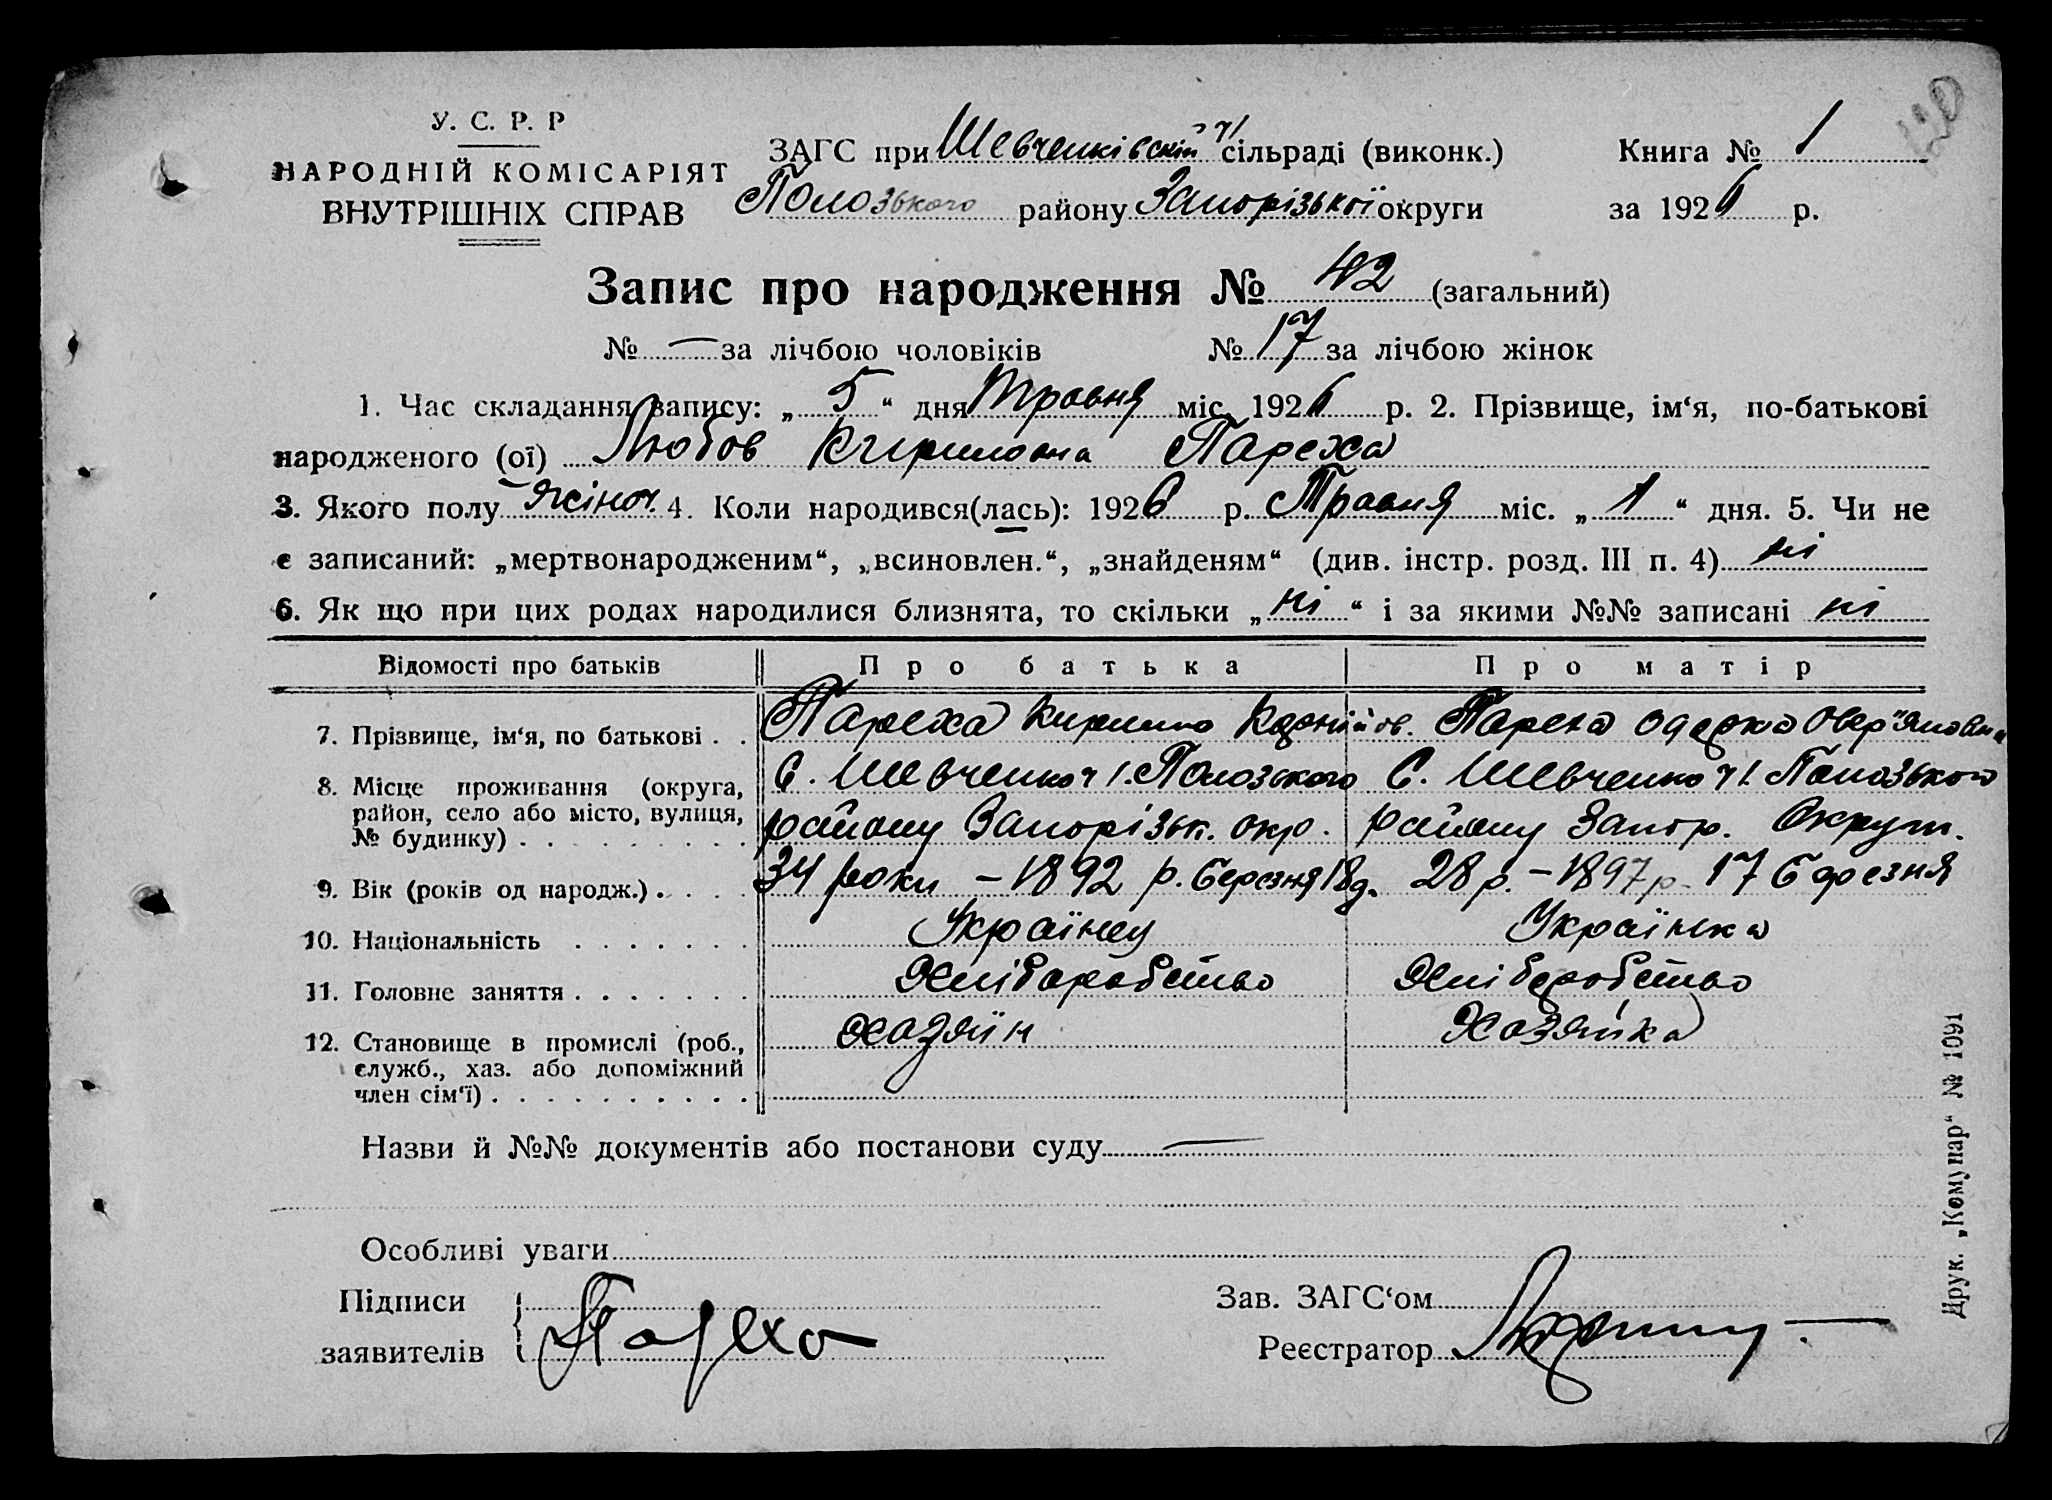 120
У. С. Р. Р
НАРОДНІЙ КОМІСАРІЯТ
ВНУТРІШНІХ СПРАВ
ЗАГС при Шевченківській ч1 сільраді (виконк.)
Полозького району Запорізької округи
Книга № 1
за 1926 р.
Запис про народження № 42 (загальний)
№ — за лічбою чоловіків № 17 за лічбою жінок
1. Час складання запису: „ 5 “ дня Травня міс. 1926 р. 2. Прізвище, ім‘я, по-батькові
народженого (ої) Любов Кириловна Пареха
3. Якого полу жіноч. 4. Коли народився(лась): 1926 р. Травня міс. „ 1 “ дня. 5. Чи не
є записаний: „мертвонародженим“, „всиновлен.“, „знайденям“ (див. інстр. розд. III п. 4) ні
6. Як що при цих родах народилися близнята, то скільки „ ні “ і за якими №№ записані ні
Відомості про батьків Про батька Про матір
7. Прізвище, ім‘я, по батькові . . Пареха Кирило Пареха Одарка
8. Місце проживання (округа, район, село або місто, вулиця, № будинку) . . . . . . . . .
С. Шевченко ч 1. Полозького
району Запорізьк. окр.
С. Шевченко ч 1. Полозького
району Запор. Округи.
9. Вік (років од народж.) . . . . 34 роки – 1892 р. березня 18 д. 28 р. – 1897 р. 17 березня
10. Національність . . . . . . . Українец Українка
11. Головне заняття . . . . . . . Хліборобство Хліборобство
12. Становище в промислі (роб., служб., хаз. або допоміжний член сім‘ї) . . . . . . . . . .
Хазяїн Хозяйка
Назви й №№ документів або постанови суду —
Особливі уваги
Підписи
заявителів
Пареха
Зав. ЗАГС‘ом
Реєстратор
Друк. „Комунар“ № 1091